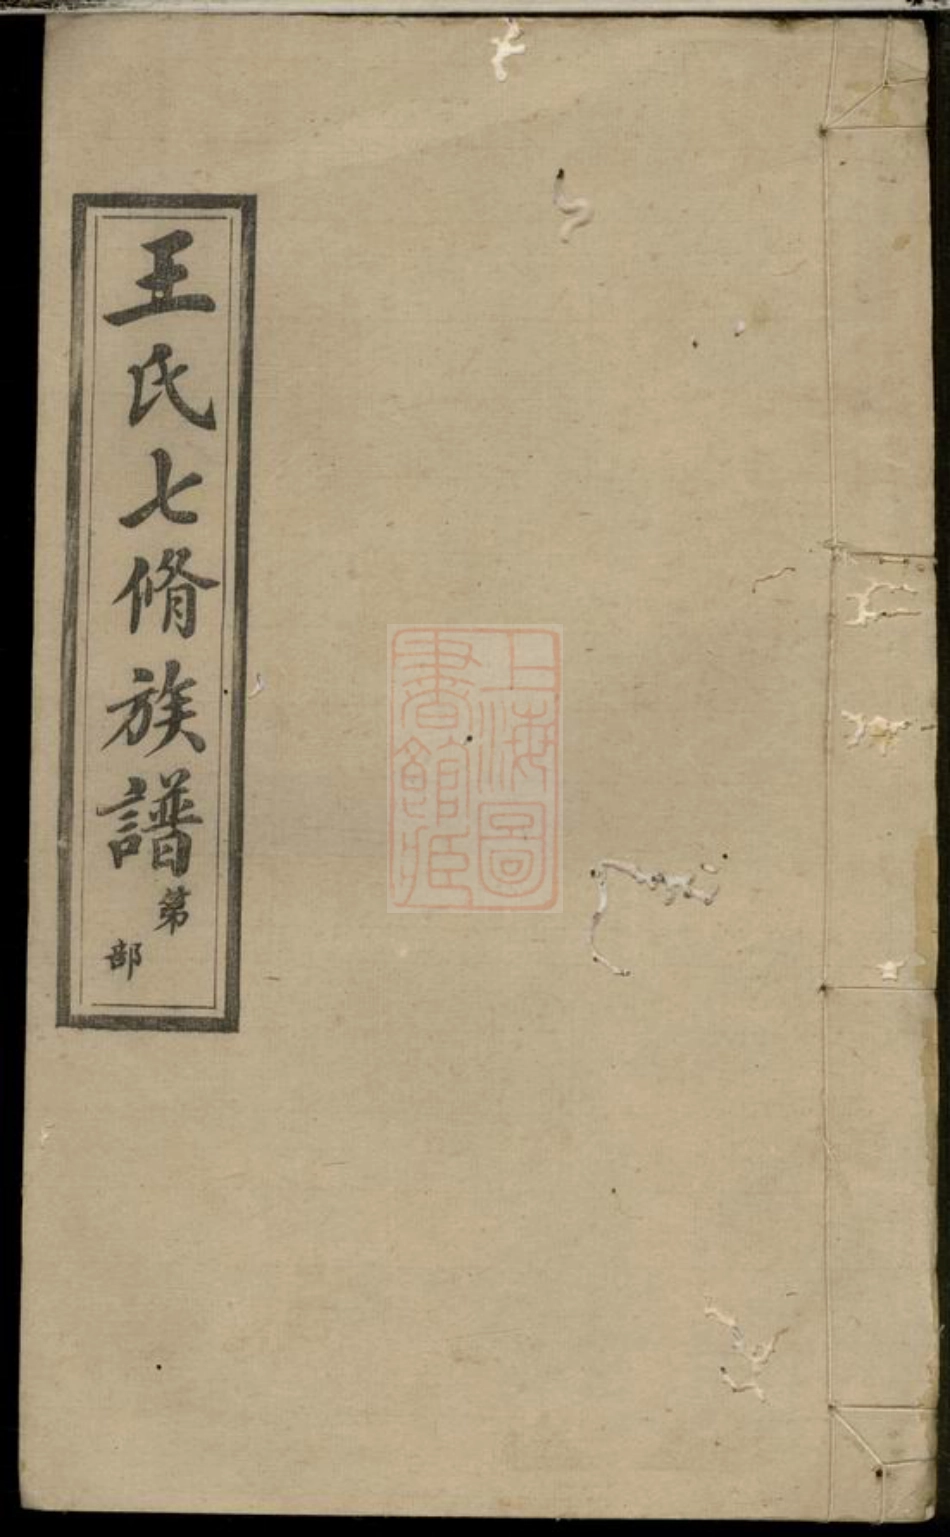 王氏七脩族譜
第
部
上海圖
書館藏